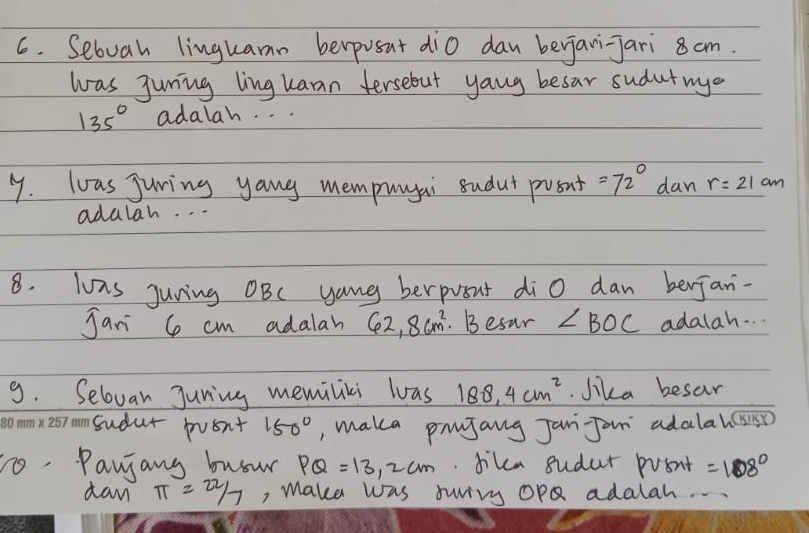 6. Sebuah lingkaran berpusat di O dan berjari-jari 8 cm.
luas juring lingkaran tersebut yang besar sudutnya
135° adalah...
7. luas juring yang mempunyai sudut pusat = 72° dan r = 21 cm
adalah...
8. luas juring OBC yang berpusat di O dan berjari-
jari 6 cm adalah 62,8 cm². Besar ∠BOC adalah...
9. Sebuah juring memiliki luas 188,4 cm². Jika besar
80 mm x 257 mm sudut pusat 150°, maka panjang jari-jari adalah KIKY
10. Panjang busur PQ = 13,2 cm. Jika sudut pusat = 108°
dan π = 22/7, maka luas juring OPQ adalah....